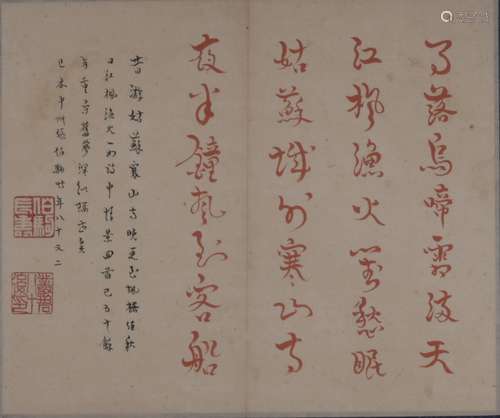 月落烏啼霜滿天
江楓漁火對愁眠
姑蘇城外寒山寺
夜半鐘聲到客船
昔游姑蘇寒山寺晚楓橋泊秋
日江楓漁火一如詩中情景回首已五十餘
年重尋舊夢深
己未中州張伯駒時年八十又二
伯駒長壽